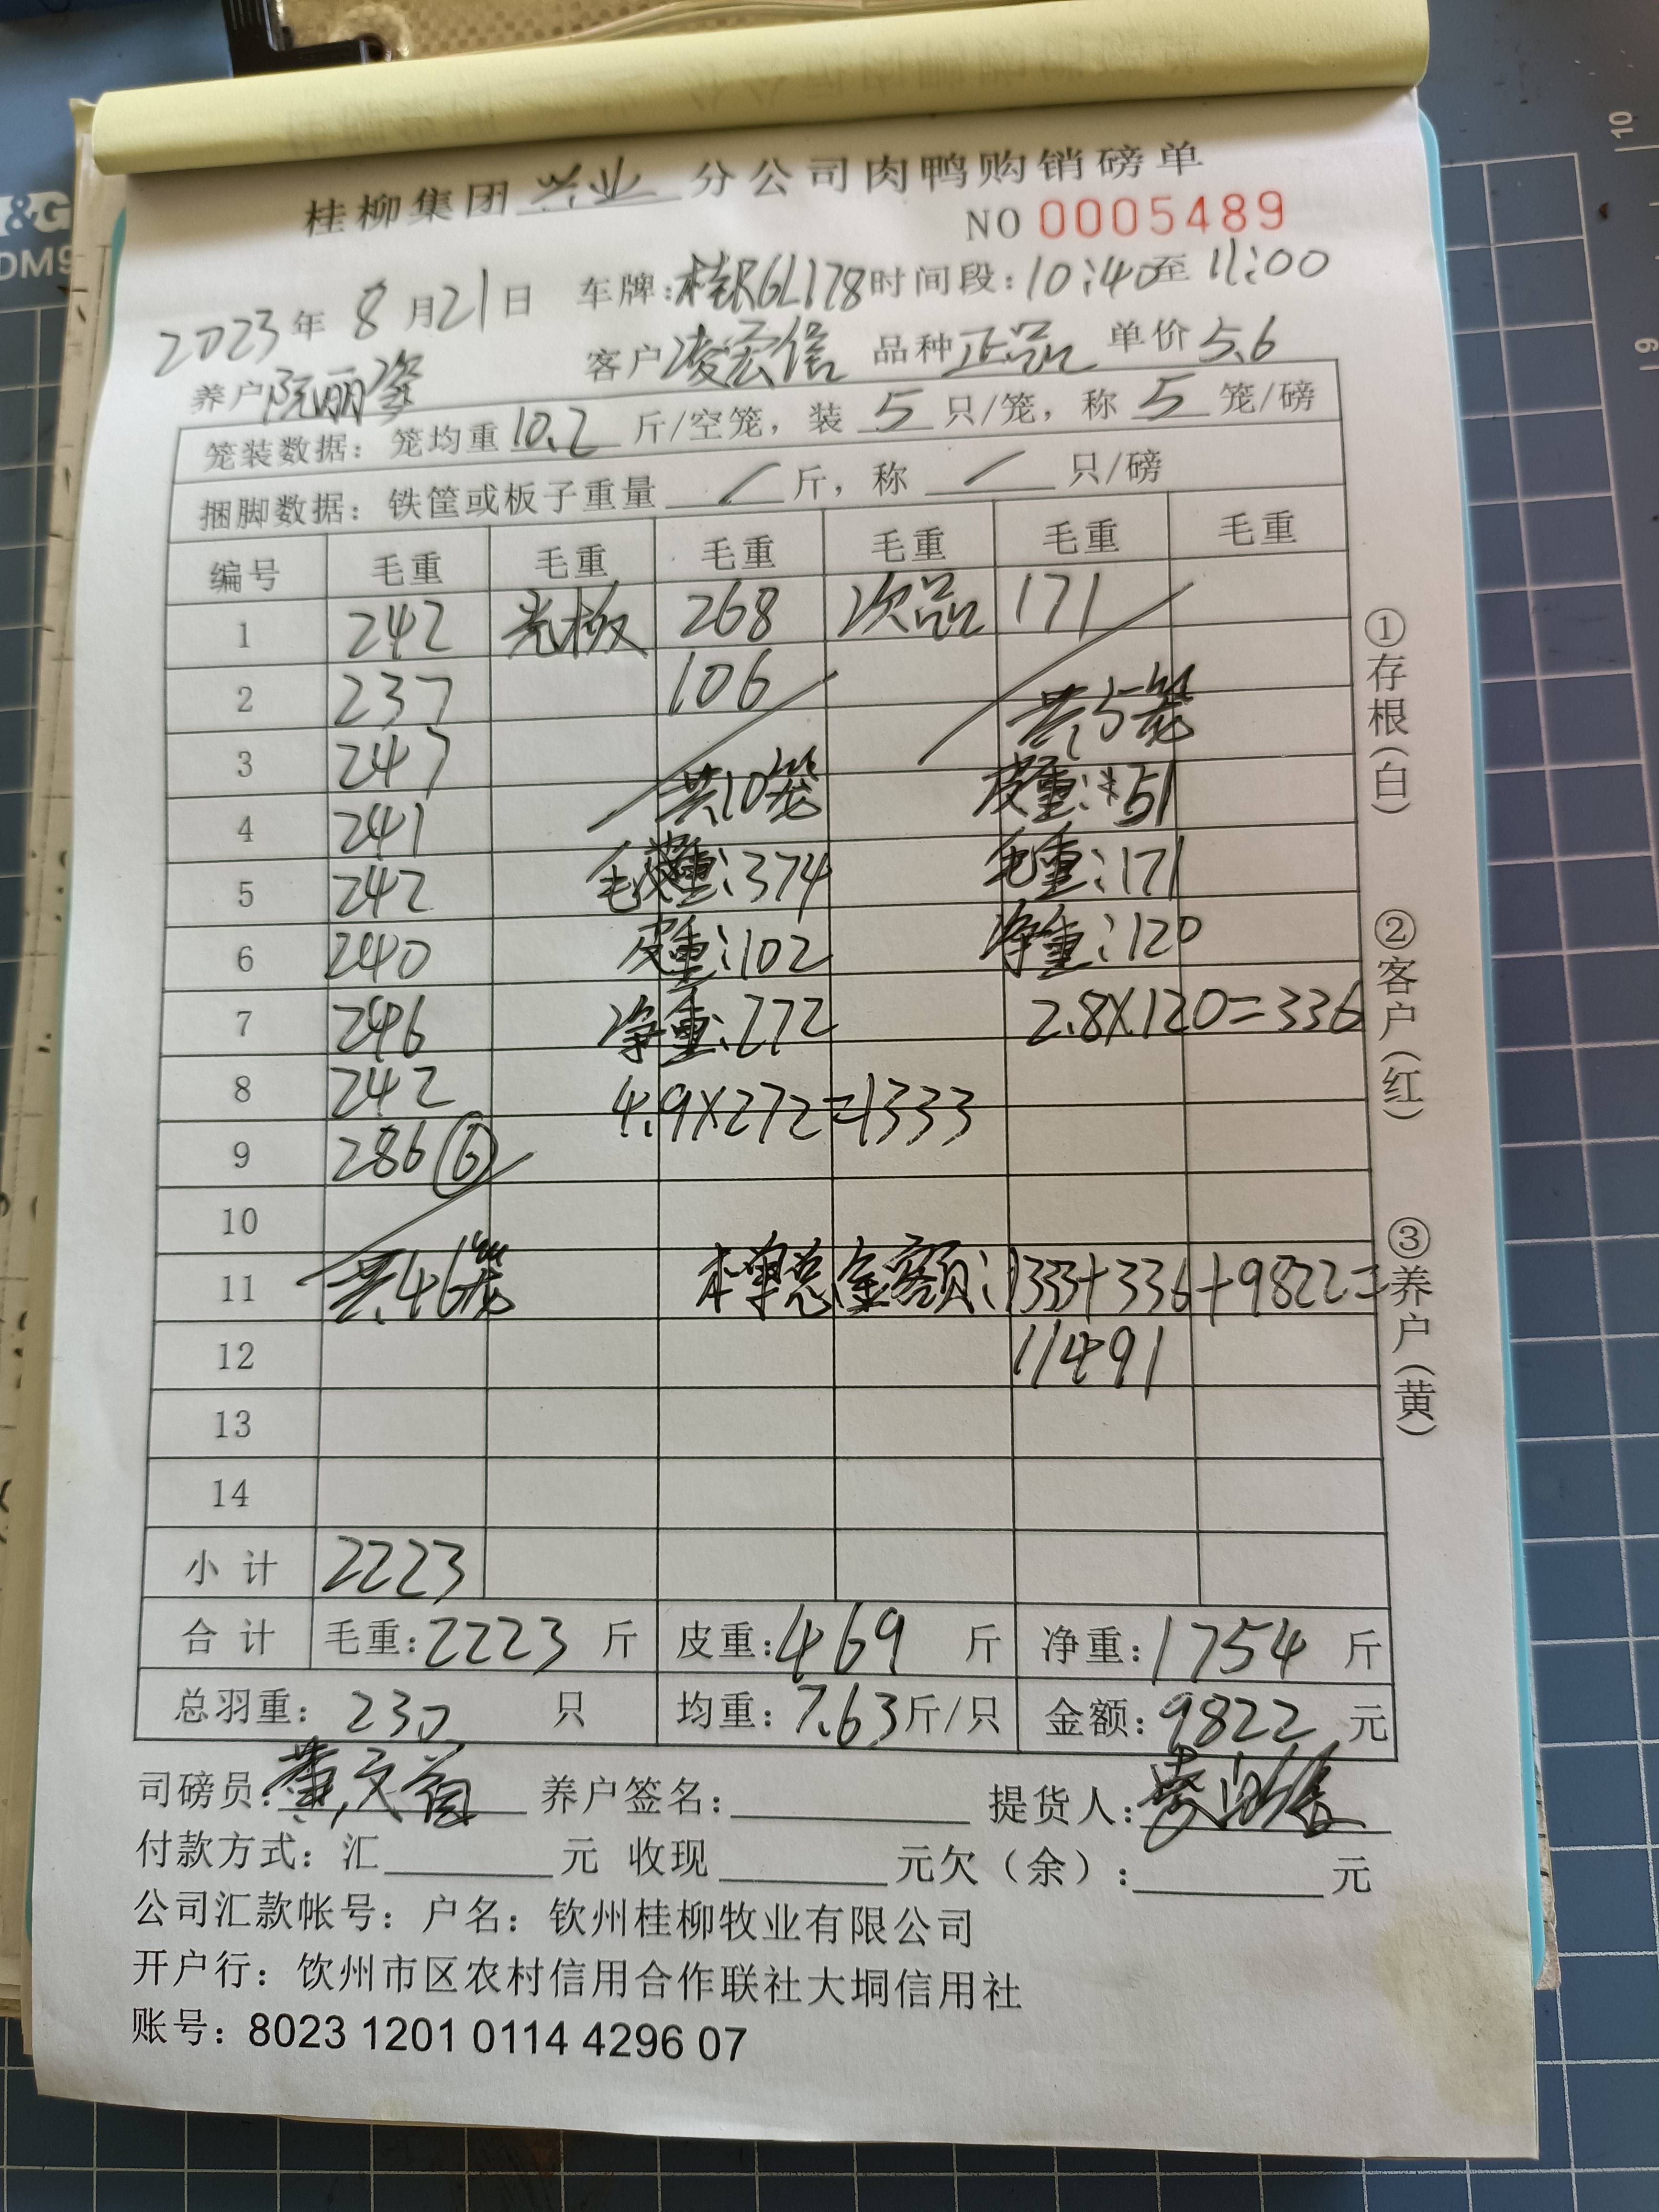 桂柳集团兴业分公司肉鸭购销磅单
NO 0005489
2023年8月21日 车牌:桂RGL178 时间段:10:40至11:00
养户 阮丽 客户 凌宏信 品种 正品 单价 5.6
笼装数据: 笼均重 10.2 斤/空笼, 装 5 只/笼, 称 5 笼/磅
捆脚数据: 铁筐或板子重量 / 斤, 称 / 只/磅
编号 毛重 毛重 毛重 毛重 毛重 毛重
1 242 光板 268 次品 171
2 237 106 共5笼
3 247 共10笼 皮重:51
4 241
5 242 毛重:374 毛重:171
6 240 皮重:102 净重:120
7 246 净重:272 2.8×120=336
8 242 4.9×272=1333
9 286 ⑥
10
11 共46笼 本单总金额:1333+336+9822=
12 11491
13
14
小计 2223
合计 毛重:2223 斤 皮重:469 斤 净重:1754 斤
总羽重: 230 只 均重: 7.63斤/只 金额:9822 元
司磅员: 养户签名: 提货人:
付款方式: 汇 元 收现 元欠(余): 元
公司汇款帐号: 户名: 钦州桂柳牧业有限公司
开户行: 饮州市区农村信用合作联社大垌信用社
账号: 8023 1201 0114 4296 07
①存根(白)
②客户(红)
③养户(黄)
&G
DM9
10
9